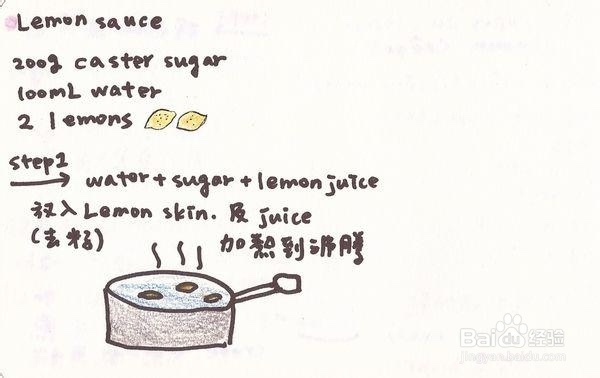 Lemon sauce
200g caster sugar
100mL water
2 lemons
step1
water + sugar + lemon juice
放入 Lemon skin. 及 juice
(去籽)
加熱到沸騰
Baidu 经验
jingyan.baidu.com